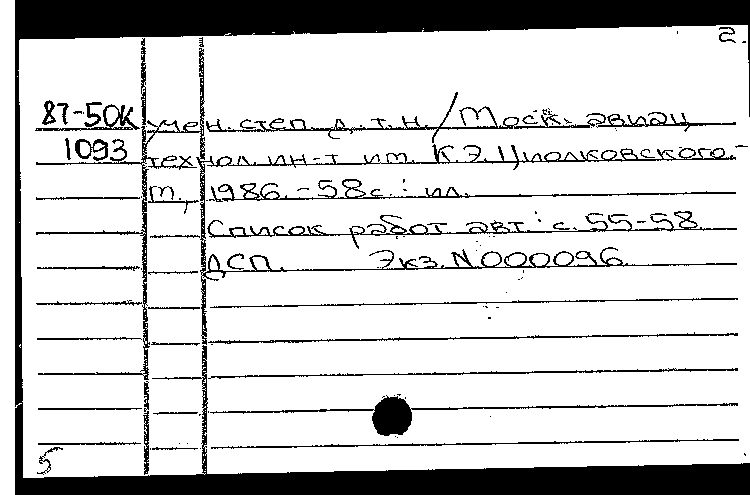 2.
87-50К учен. степ. д. т. н. / Моск. авиац
1093 технол. ин-т им. К.Э. Циолковского.-
М, 1986.-58с.: ил.
Список работ авт.: с. 55-58
ДСП. Экз. N000096.
5